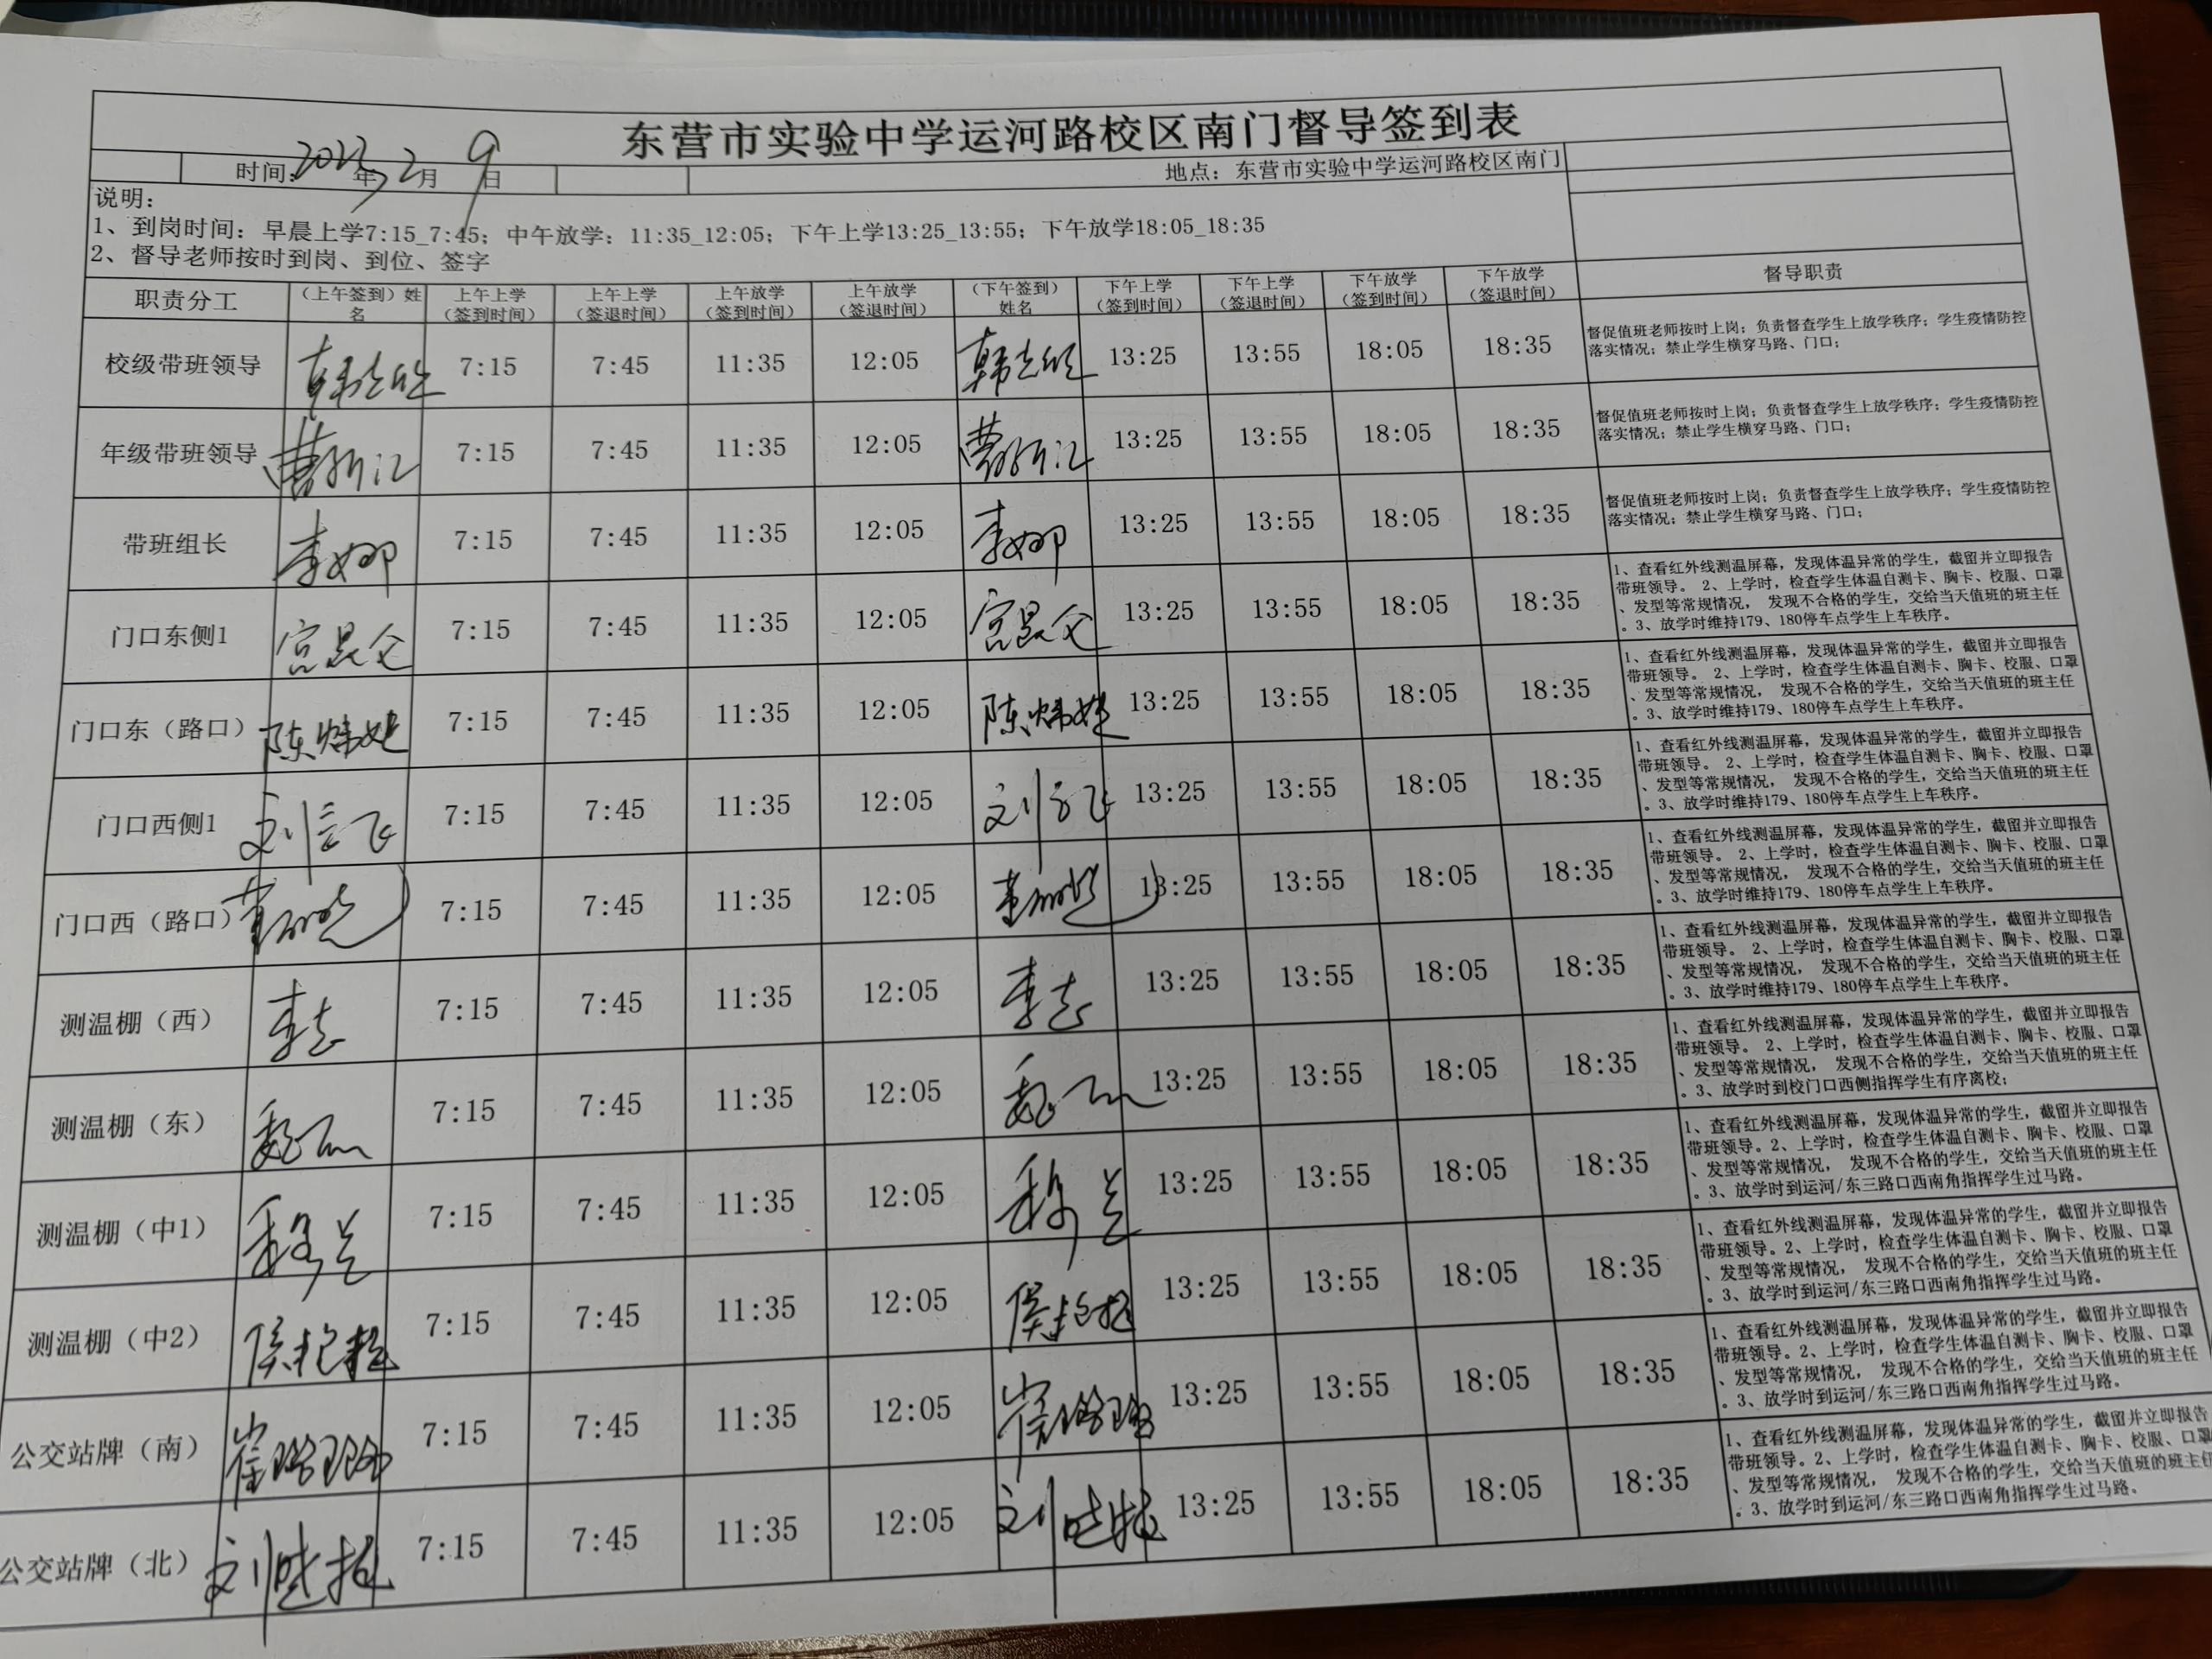 东营市实验中学运河路校区南门督导签到表
时间: 年 2 月 9 日 地点：东营市实验中学运河路校区南门
说明：
1、到岗时间：早晨上学7:15_7:45；中午放学：11:35_12:05；下午上学13:25_13:55；下午放学18:05_18:35
2、督导老师按时到岗、到位、签字
职责分工 （上午签到）姓名 上午上学（签到时间） 上午上学（签退时间） 上午放学（签到时间） 上午放学（签退时间） （下午签到）姓名 下午上学（签到时间） 下午上学（签退时间） 下午放学（签到时间） 下午放学（签退时间） 督导职责
校级带班领导 7:15 7:45 11:35 12:05 13:25 13:55 18:05 18:35
督促值班老师按时上岗；负责督查学生上放学秩序；学生疫情防控
落实情况；禁止学生横穿马路、门口；
年级带班领导 7:15 7:45 11:35 12:05 13:25 13:55 18:05 18:35
督促值班老师按时上岗；负责督查学生上放学秩序；学生疫情防控
落实情况；禁止学生横穿马路、门口；
带班组长 李娜 7:15 7:45 11:35 12:05 李娜 13:25 13:55 18:05 18:35
督促值班老师按时上岗；负责督查学生上放学秩序；学生疫情防控
落实情况；禁止学生横穿马路、门口；
门口东侧1 宫昆仑 7:15 7:45 11:35 12:05 宫昆仑 13:25 13:55 18:05 18:35
1、查看红外线测温屏幕，发现体温异常的学生，截留并立即报告
带班领导。 2、上学时，检查学生体温自测卡、胸卡、校服、口罩
、发型等常规情况， 发现不合格的学生，交给当天值班的班主任
。3、放学时维持179、180停车点学生上车秩序。
门口东（路口） 陈炜婕 7:15 7:45 11:35 12:05 陈炜婕 13:25 13:55 18:05 18:35
1、查看红外线测温屏幕，发现体温异常的学生，截留并立即报告
带班领导。 2、上学时，检查学生体温自测卡、胸卡、校服、口罩
、发型等常规情况， 发现不合格的学生，交给当天值班的班主任
。3、放学时维持179、180停车点学生上车秩序。
门口西侧1 7:15 7:45 11:35 12:05 13:25 13:55 18:05 18:35
1、查看红外线测温屏幕，发现体温异常的学生，截留并立即报告
带班领导。 2、上学时，检查学生体温自测卡、胸卡、校服、口罩
、发型等常规情况， 发现不合格的学生，交给当天值班的班主任
。3、放学时维持179、180停车点学生上车秩序。
门口西（路口） 7:15 7:45 11:35 12:05 13:25 13:55 18:05 18:35
1、查看红外线测温屏幕，发现体温异常的学生，截留并立即报告
带班领导。 2、上学时，检查学生体温自测卡、胸卡、校服、口罩
、发型等常规情况， 发现不合格的学生，交给当天值班的班主任
。3、放学时维持179、180停车点学生上车秩序。
测温棚（西） 李志 7:15 7:45 11:35 12:05 李志 13:25 13:55 18:05 18:35
1、查看红外线测温屏幕，发现体温异常的学生，截留并立即报告
带班领导。 2、上学时，检查学生体温自测卡、胸卡、校服、口罩
、发型等常规情况， 发现不合格的学生，交给当天值班的班主任
。3、放学时维持179、180停车点学生上车秩序。
测温棚（东） 7:15 7:45 11:35 12:05 13:25 13:55 18:05 18:35
1、查看红外线测温屏幕，发现体温异常的学生，截留并立即报告
带班领导。 2、上学时，检查学生体温自测卡、胸卡、校服、口罩
、发型等常规情况， 发现不合格的学生，交给当天值班的班主任
。3、放学时到校门口西侧指挥学生有序离校；
测温棚（中1） 7:15 7:45 11:35 12:05 13:25 13:55 18:05 18:35
1、查看红外线测温屏幕，发现体温异常的学生，截留并立即报告
带班领导。2、上学时，检查学生体温自测卡、胸卡、校服、口罩
、发型等常规情况， 发现不合格的学生，交给当天值班的班主任
。3、放学时到运河/东三路口西南角指挥学生过马路。
测温棚（中2） 7:15 7:45 11:35 12:05 13:25 13:55 18:05 18:35
1、查看红外线测温屏幕，发现体温异常的学生，截留并立即报告
带班领导。2、上学时，检查学生体温自测卡、胸卡、校服、口罩
、发型等常规情况， 发现不合格的学生，交给当天值班的班主任
。3、放学时到运河/东三路口西南角指挥学生过马路。
公交站牌（南） 崔璐璐 7:15 7:45 11:35 12:05 崔璐璐 13:25 13:55 18:05 18:35
1、查看红外线测温屏幕，发现体温异常的学生，截留并立即报告
带班领导。2、上学时，检查学生体温自测卡、胸卡、校服、口罩
、发型等常规情况， 发现不合格的学生，交给当天值班的班主任
。3、放学时到运河/东三路口西南角指挥学生过马路。
公交站牌（北） 7:15 7:45 11:35 12:05 13:25 13:55 18:05 18:35
1、查看红外线测温屏幕，发现体温异常的学生，截留并立即报告
带班领导。2、上学时，检查学生体温自测卡、胸卡、校服、口罩
、发型等常规情况， 发现不合格的学生，交给当天值班的班主任
。3、放学时到运河/东三路口西南角指挥学生过马路。